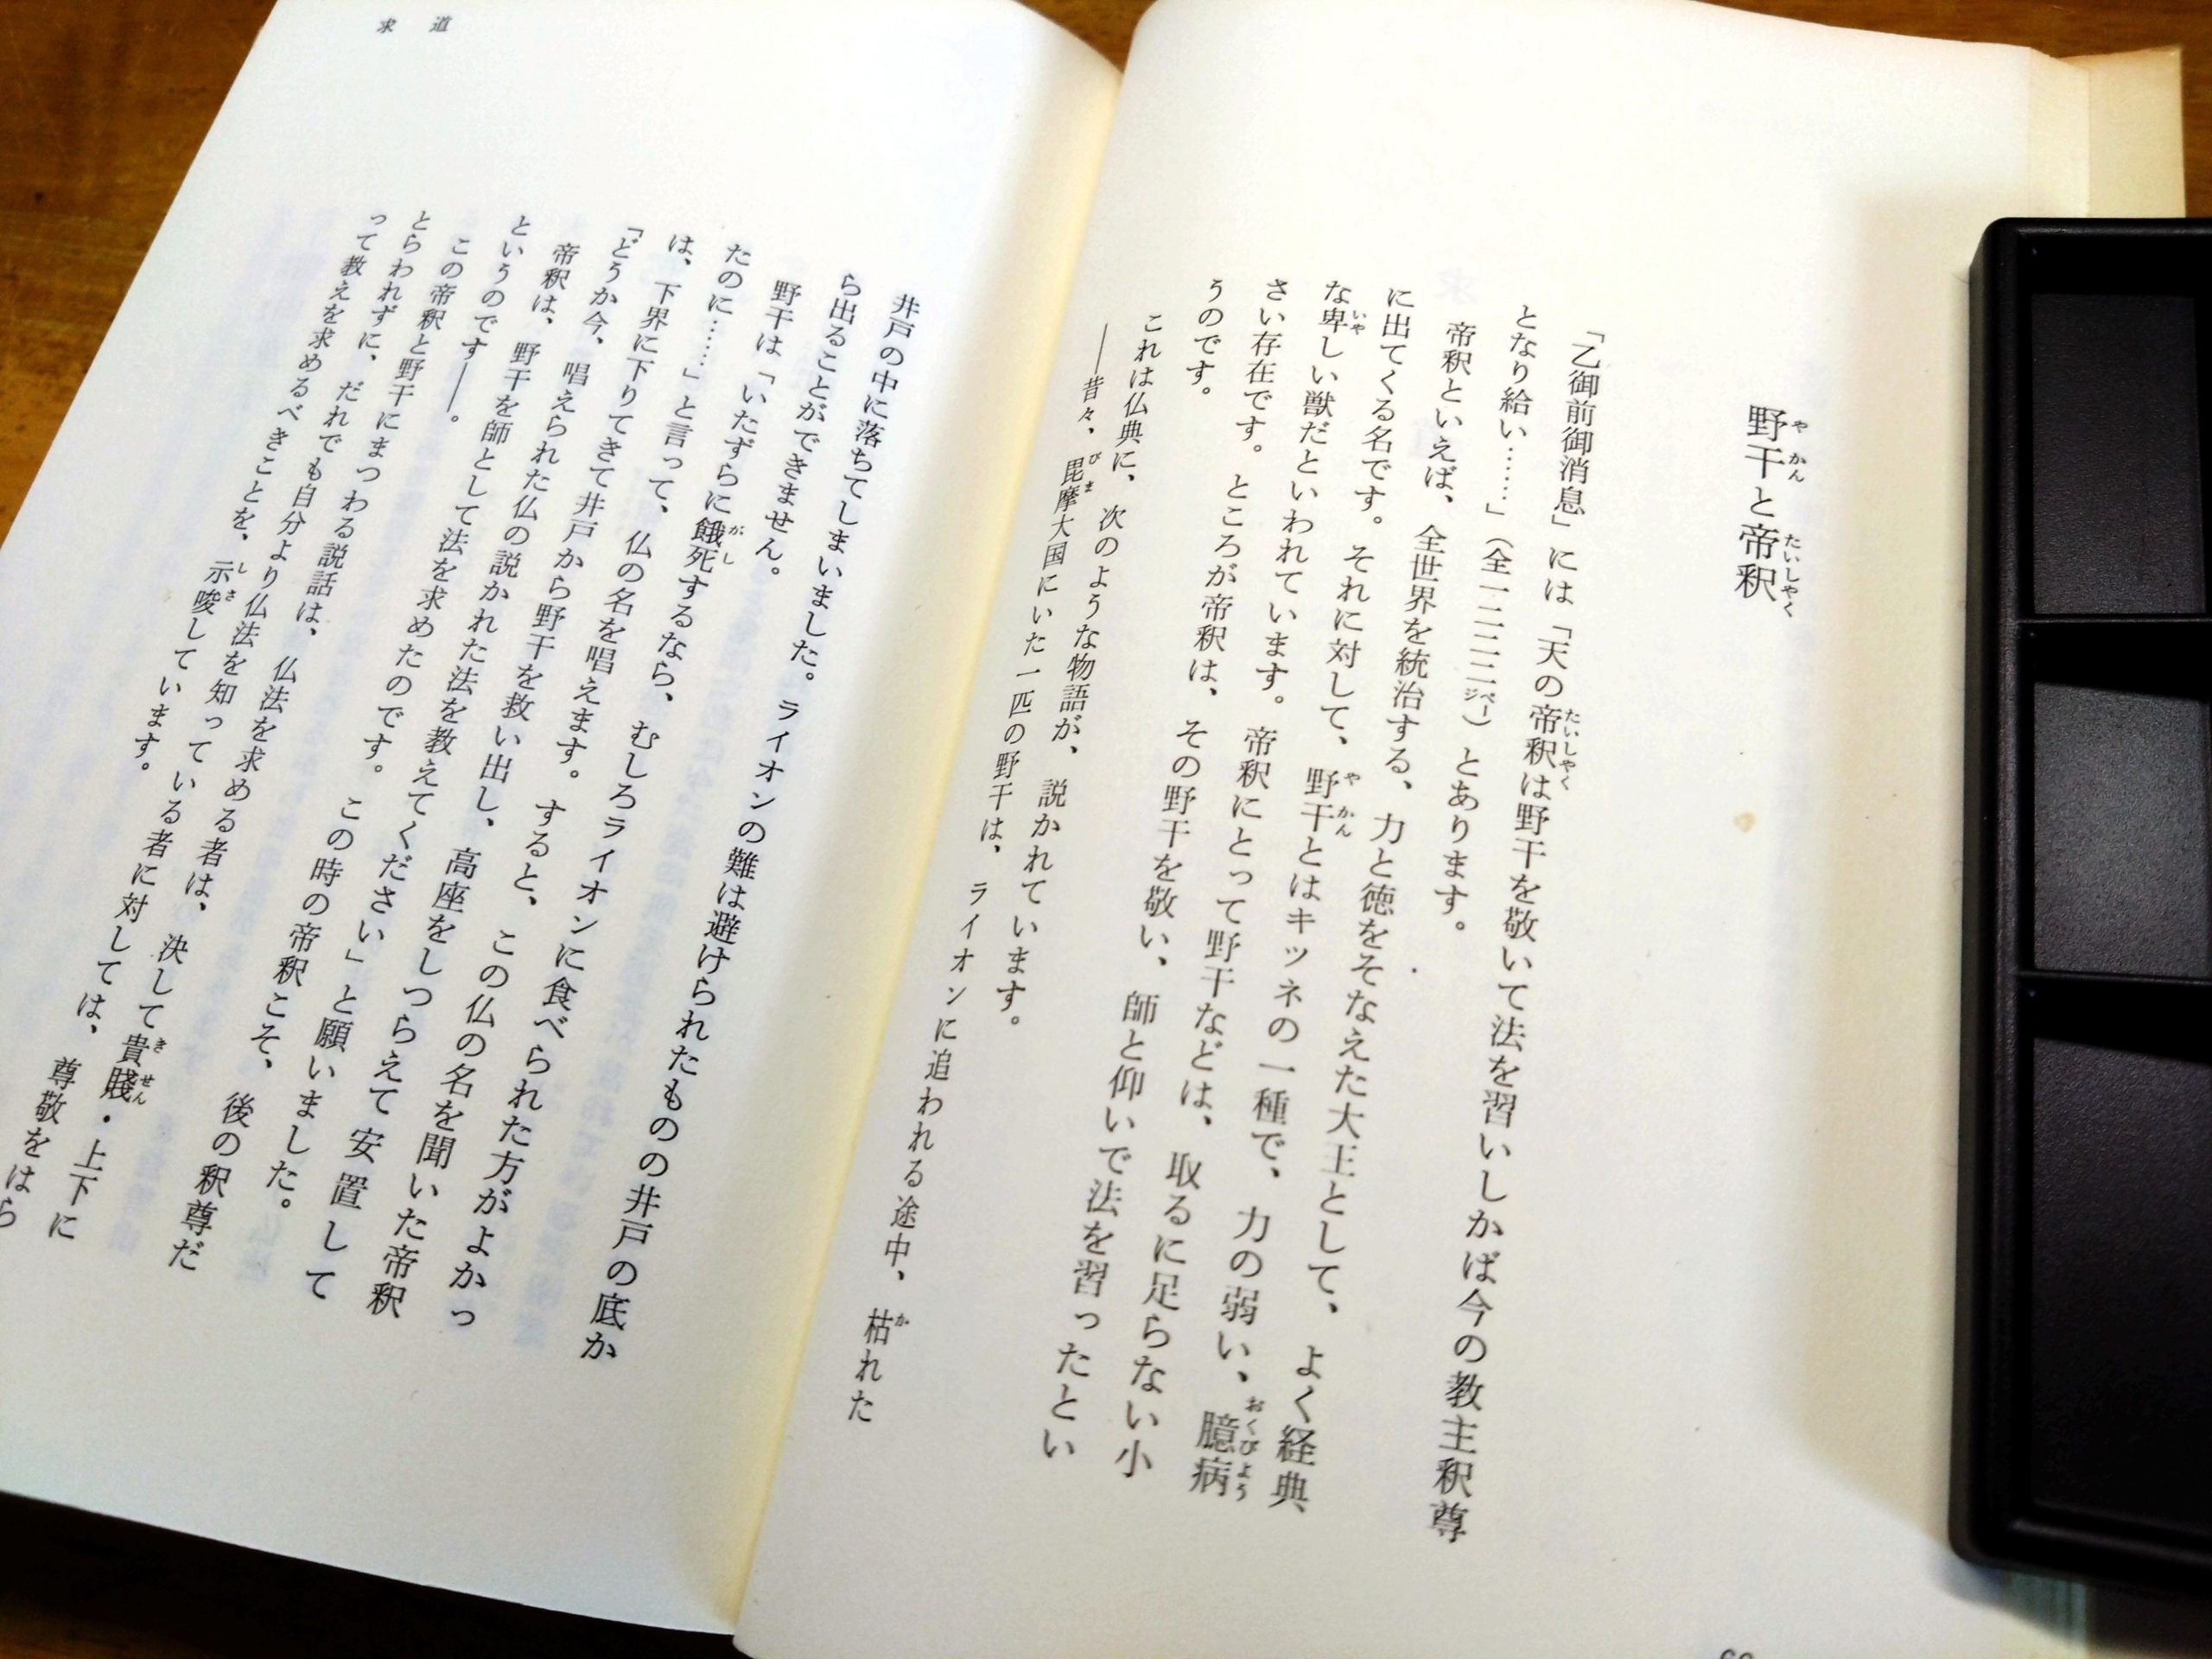 野干と帝釈
「乙御前御消息」には「天の帝釈は野干を敬いて法を習いしかば今の教主釈尊
となり給い……」（全一二二二㌻）とあります。
帝釈といえば、全世界を統治する、力と徳をそなえた大王として、よく経典
に出てくる名です。それに対して、野干とはキツネの一種で、力の弱い、臆病
な卑しい獣だといわれています。帝釈にとって野干などは、取るに足らない小
さい存在です。ところが帝釈は、その野干を敬い、師と仰いで法を習ったとい
うのです。
これは仏典に、次のような物語が、説かれています。
――昔々、毘摩大国にいた一匹の野干は、ライオンに追われる途中、枯れた
求道
井戸の中に落ちてしまいました。ライオンの難は避けられたものの井戸の底か
ら出ることができません。
野干は「いたずらに餓死するなら、むしろライオンに食べられた方がよかっ
たのに……」と言って、仏の名を唱えます。すると、この仏の名を聞いた帝釈
は、下界に下りてきて井戸から野干を救い出し、高座をしつらえて安置して
「どうか今、唱えられた仏の説かれた法を教えてください」と願いました。
帝釈は、野干を師として法を求めたのです。この時の帝釈こそ、後の釈尊だ
というのです――。
この帝釈と野干にまつわる説話は、仏法を求める者は、決して貴賤・上下に
とらわれずに、だれでも自分より仏法を知っている者に対しては、尊敬をはら
って教えを求めるべきことを、示唆しています。